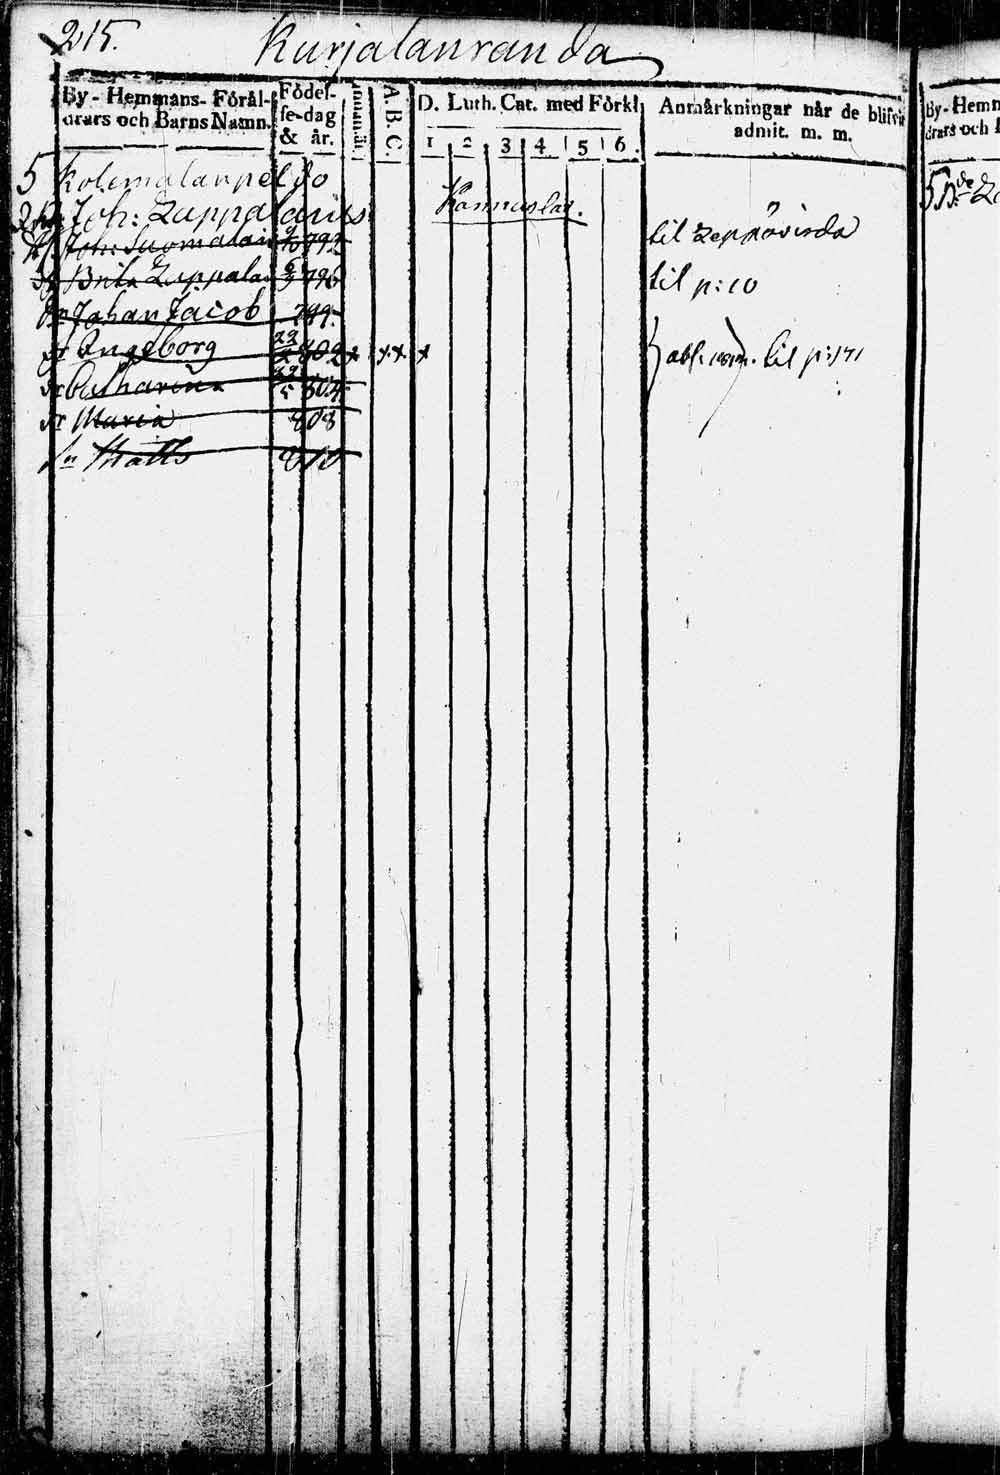 215. Kurjalanranda
By- Hemmans- Förål-
drars och Barns Namn.
Födel-
se-dag
& år.
A. B. C.
D. Luth. Cat. med Förkl.
1 2 3 4 5 6.
Anmärkningar når de blifvit
admit. m. m.
5 Kolemalanpeldo
Joh: Lappalanis Kannuslax.
Joh: Suomalain 792 til Leppävirda
Brita Lappalai 796 til p: 10
Johan Jacob 799.
Ingeborg 29 802 x x x x abs. til p: 171
Catharina 22/5 804
Maria 808
Matts 810
By- Hemm
drars och
5